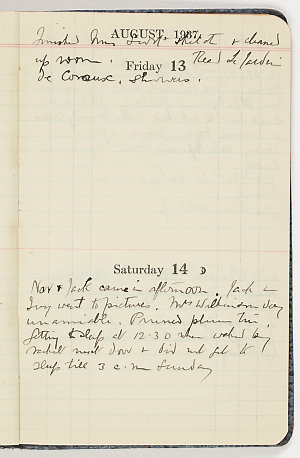 AUGUST, 1937.
Finished Mrs sketch & cleaned
up room. Read le Jardin
Friday 13
de Showers.
Saturday 14
Nor & Jack came in afternoon. Jack &
Ivy went to pictures. Mrs Wilkinson very
unamiable. Pruned plum tree,
getting to sleep at 12.30 when waked by
racket next door & did not get to
sleep till 3 a.m Sunday